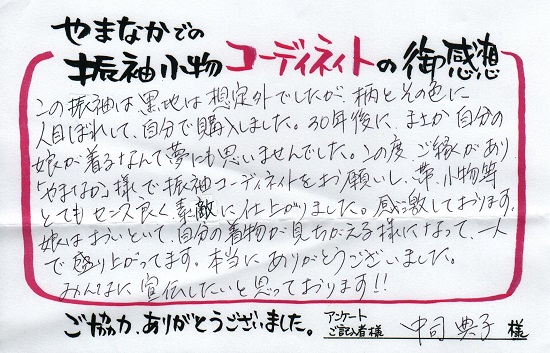 やまなかでの
振袖小物コーディネイトの御感想
この振袖は黒地は想定外でしたが、柄とその色に
一目ぼれして、自分で購入しました。30年後に、まさか自分の
娘が着るなんて夢にも思いませんでした。この度、ご縁があり
「やまなか」様で振袖コーディネイトをお願いし、帯、小物等
とてもセンス良く素敵に仕上がりました。感激しております。
娘はおいといて、自分の着物が見ちがえる様になって、一人
で盛り上がってます。本当にありがとうございました。
みんなに宣伝したいと思っております!!
ご協力、ありがとうございました。
アンケート
ご記入者様 中司 典子 様